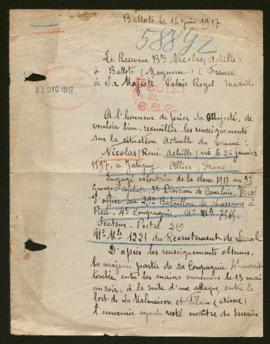 Ballots le 14 Juin 1917
58892
Le Receveur Bte Nicolas, Achille,
à Ballots (Mayenne) (France
à Sa Majesté Palais Royal Madrid
31 DIC 1917
A l'honneur de prier Sa Majesté, de
vouloir bien, recueillir les renseignements
sur la situation Actuelle du nommé:
Nicolas, René Achille, né le 26 janvier
1897, à Allier France
Engagé volontaire de la classe 1917 au 3e
Division de Cavalerie
au 29e Bataillon de chasseurs à
Pied, Compagnie Mle 7565
Secteur - Postal 219
Nº Mle 1221 du Recrutement de Laval
D'après les renseignements obtenus,
la majeure partie de sa Compagnie
tombée entre les mains ennemies le 13 mai
au soir, à la suite d'une attaque, entre le
fort de La Malmaison et Filain (Aisne)
l'ennemie ayant resté maître du terrain